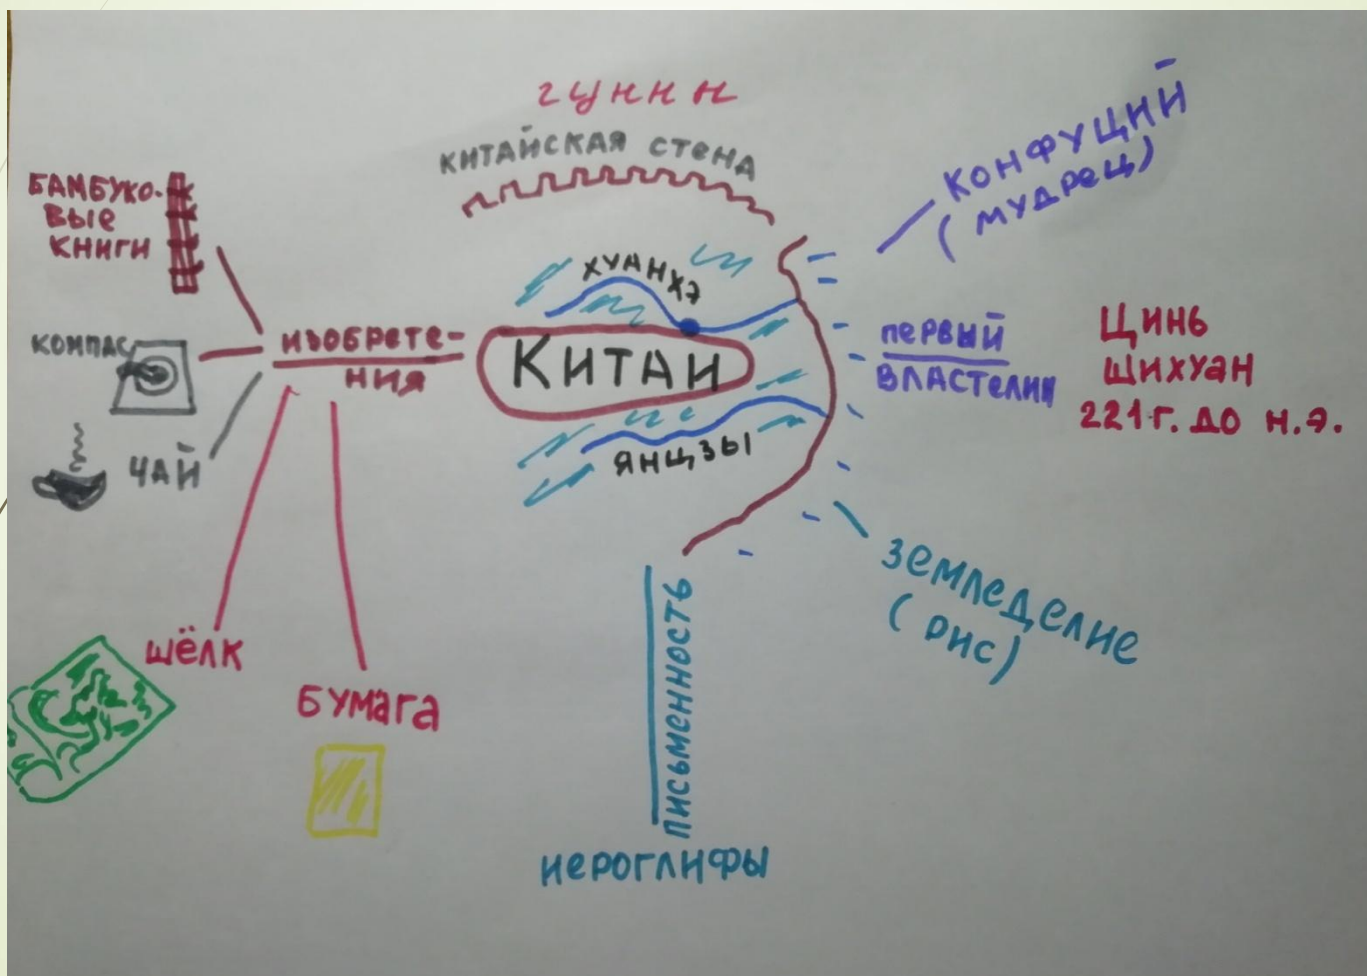 гунны
КИТАЙСКАЯ СТЕНА
БАМБУКО-
ВЫЕ
КНИГИ
КОМПАС
ЧАЙ
ИЗОБРЕТЕ-
НИЯ
ШЁЛК
БУМАГА
ХУАНХЭ
КИТАЙ
ЯНЦЗЫ
КОНФУЦИЙ
(МУДРЕЦ)
ПЕРВЫЙ
ВЛАСТЕЛИН
ЦИНЬ
ШИХУАН
221 г. ДО Н.Э.
ЗЕМЛЕДЕЛИЕ
(РИС)
ПИСЬМЕННОСТЬ
ИЕРОГЛИФЫ